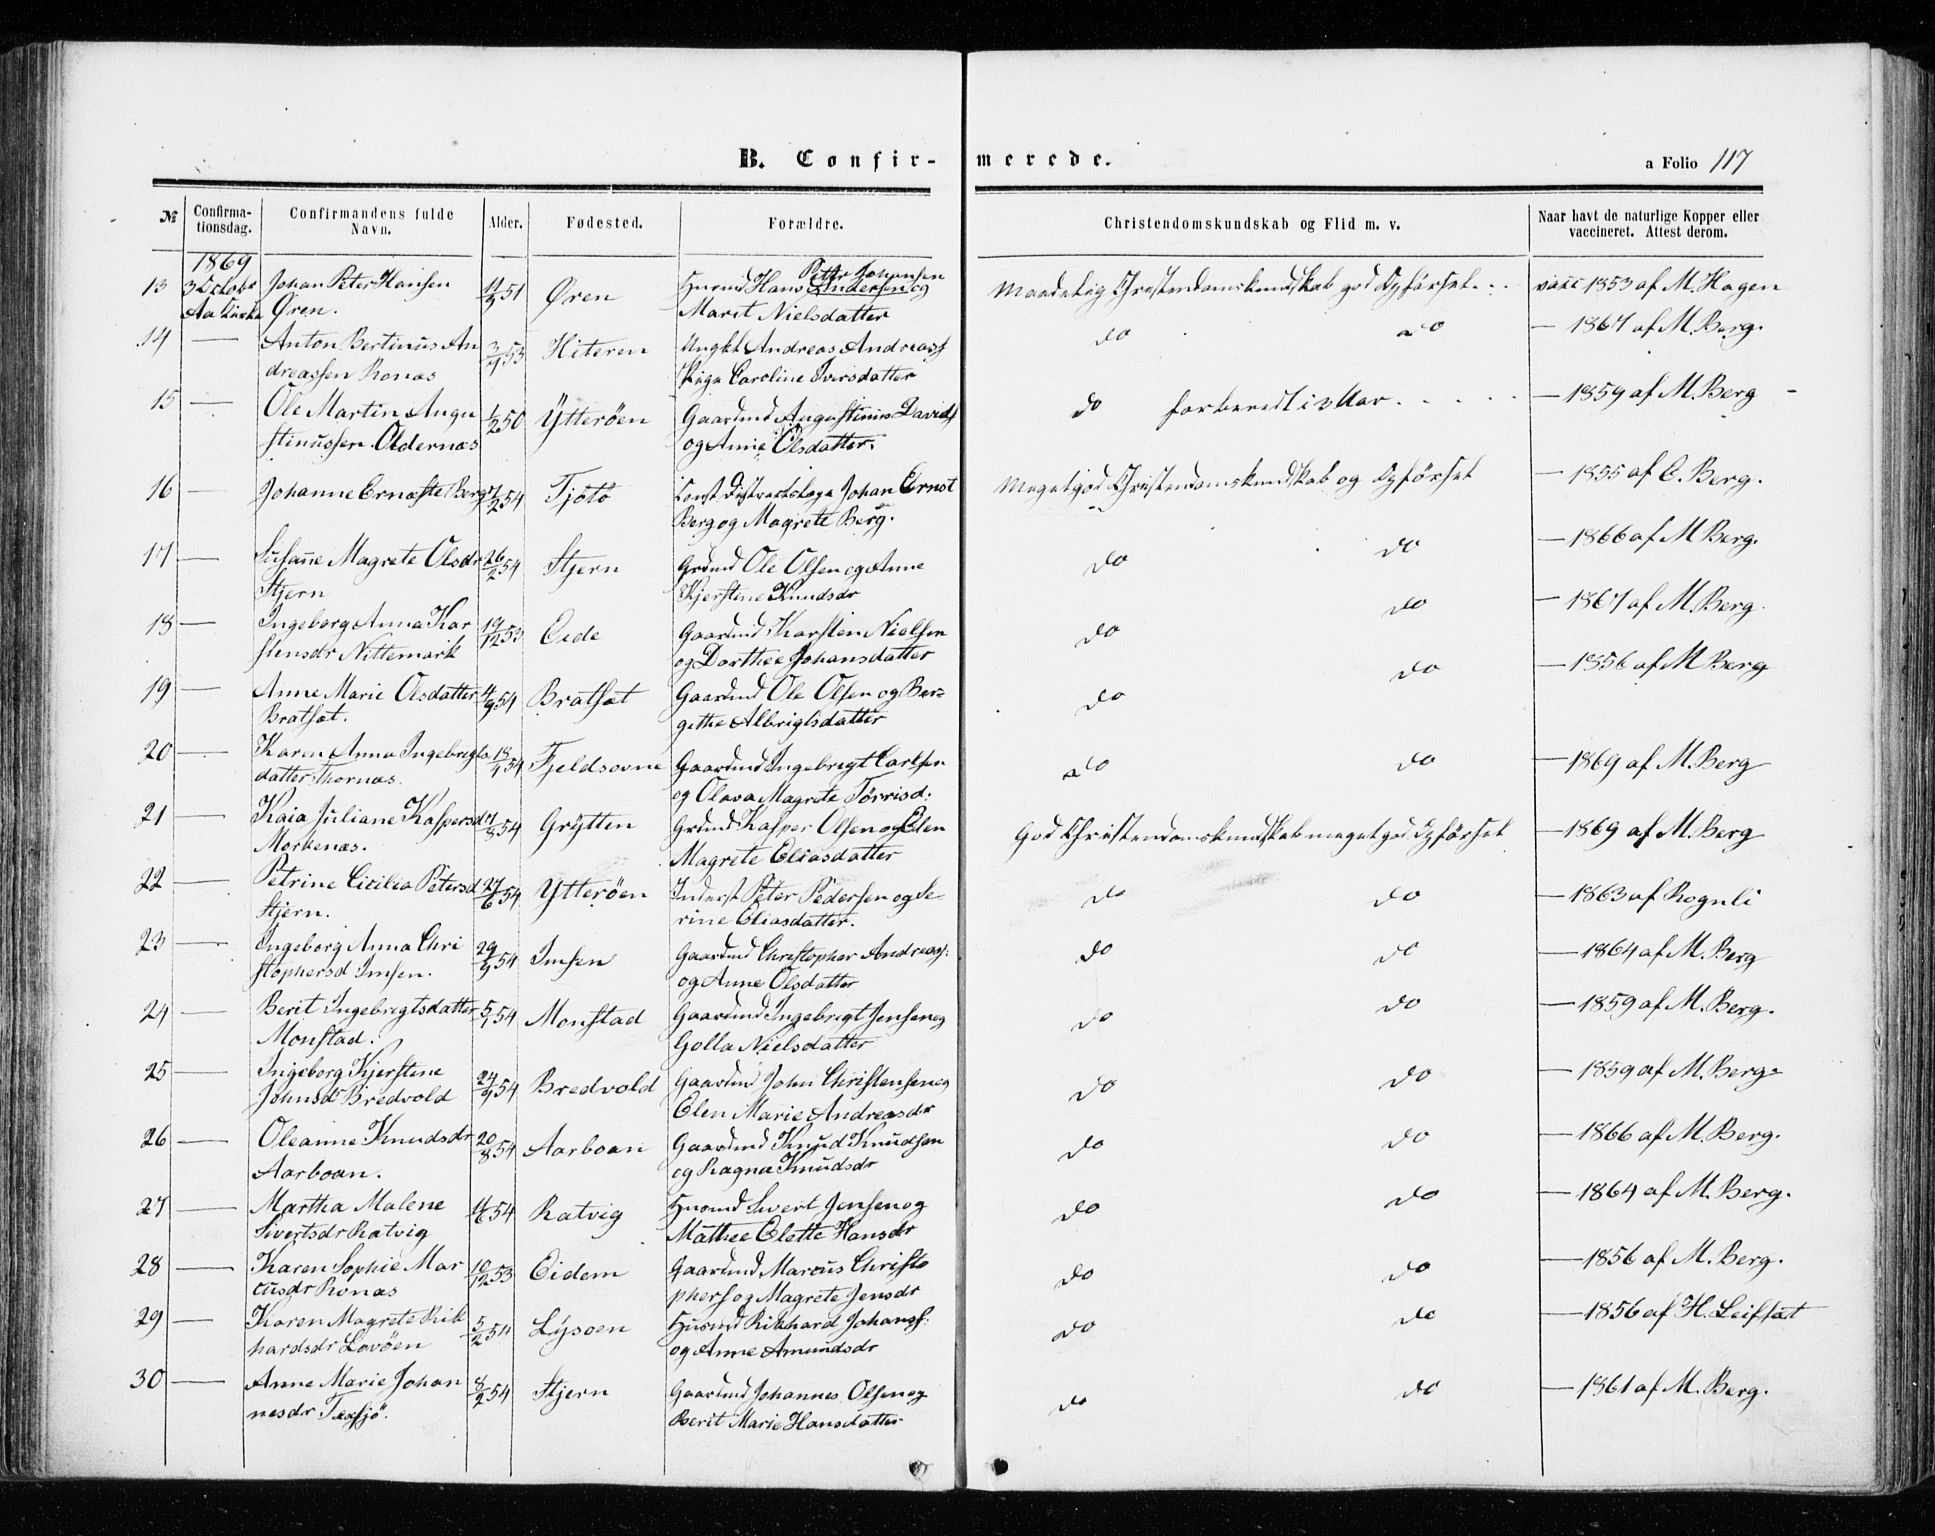 B. Confir-merede.
a Folio 117
№ Confirma-tionsdag. Confirmandens fulde Navn. Alder. Fødested. Forældre. Christendomskundskab og Flid m. v. Naar havt de naturlige Kopper eller vaccineret. Attest derom.
1869
13 3 Octobr Johan Peter Hansen 11/2 51 Øren Huusmd Hans Andersen og Maadelig Christendomskundskab god Opførsel vacc 1853 af M. Hagen
Petter Johansen
Aa Kirke Øren. Marit Nielsdatter
14 — Anton Bertinus An 3/9 53 Hiteren Ungkl Andreas Andreass do do — 1867 af M. Berg.
dreassen Ronas Pige Caroline Iversdatter
15 — Ole Martin Augu 1/2 50 Ytterøen Gaardmd Augustinus Davids do forberedt i 3 Aar — 1859 af M. Berg
stinussen Oldernæs og Anne Olsdatter.
16 — Johanne Ernæste Berg /2 54 Tjötö Const Districtslæge Johan Ernst Meget god Christendomskundskab og Opførsel — 1855 af C. Berg.
Berg og Magrete Berg.
17 — Susane Magrete Olsdr 26/2 54 Stjern Grdmd Ole Olsen og Anne do do — 1866 af M Berg.
Stjern Kjerstine Knudsdr
18 — Ingeborg Anna Kar 19/12 53 Eide Gaardmd Karsten Nielsen do do — 1867 af M. Berg.
stensdr Nittemark og Dorthee Johansdatter
19 — Anne Marie Olsdatter 4/9 54 Bratsæt Gaardmd Ole Olsen og Ber= do do — 1856 af M Berg
Bratsæt. gethe Albrigtsdatter
20 — Karen Anna Ingebregts 18/1 54 Fjeldsovne Gaardmd Ingebregt Carlsen do do — 1869 af M. Berg
datter Thornæs. og Olava Magrete Törrisd:
21 — Kaia Juliane Kaspersd /8 54 Grÿtten Grdmd Kasper Olsen og Elen God Christendomskundskab meget god Opførsel — 1869 af M. Berg
Morkenæs. Magrete Eliasdatter
22 — Petrine Cicilia Petersd 27/6 54 Ytterøen Inderst Peter Pedersen og Se- do do — 1863 af Rognli
Stjern. rine Eliasdatter.
23 — Ingeborg Anna Chri 29/9 54 Imsen Gaardmd Christopher Andreass: do do — 1864 af M. Berg
stophersd Imsen. og Anne Olsdatter
24 — Berit Ingebregtsdatter 5/1 54 Monstad Gaardmd Ingebregt Jensen og do do — 1859 af M. Berg.
Monstad. Golla Nielsdatter
25 — Ingeborg Kjerstine 24/9 54 Bredvold Gaardmd John Christensen og do do — 1859 af M. Berg.
Johnsd Bredvold Elen Marie Andreasdr
26 — Oleanne Knudsdr 20/8 54 Aarboan Gaardmd Knud Knudsen do do — 1866 af M. Berg.
Aarboan. og Ragna Knudsdr
27 — Martha Malene 11/6 54 Ratvig Huusmd Sivert Jensen og do do — 1864 af M. Berg.
Sivertsdr Ratvig Mathee Elette Hansdr
28 — Karen Sophie Mar 10/12 53 Eidem Gaardmd Marcus Christo do do — 1856 af M. Berg.
cusdr Ronas phers og Magrete Jensdr
29 — Karen Magrete Rik 5/2 54 Lÿsoen Husmd Rikhard Johanss: do do — 1856 af H. Leifsæt
hardsdr Lovöen og Anne Amundsdr
30 — Anne Marie Johan 8/2 54 Stjern Gaardmd Johannes Olsen og do do — 1861 af M. Berg.
nesdr Texsjö. Berit Marie Hansdatter